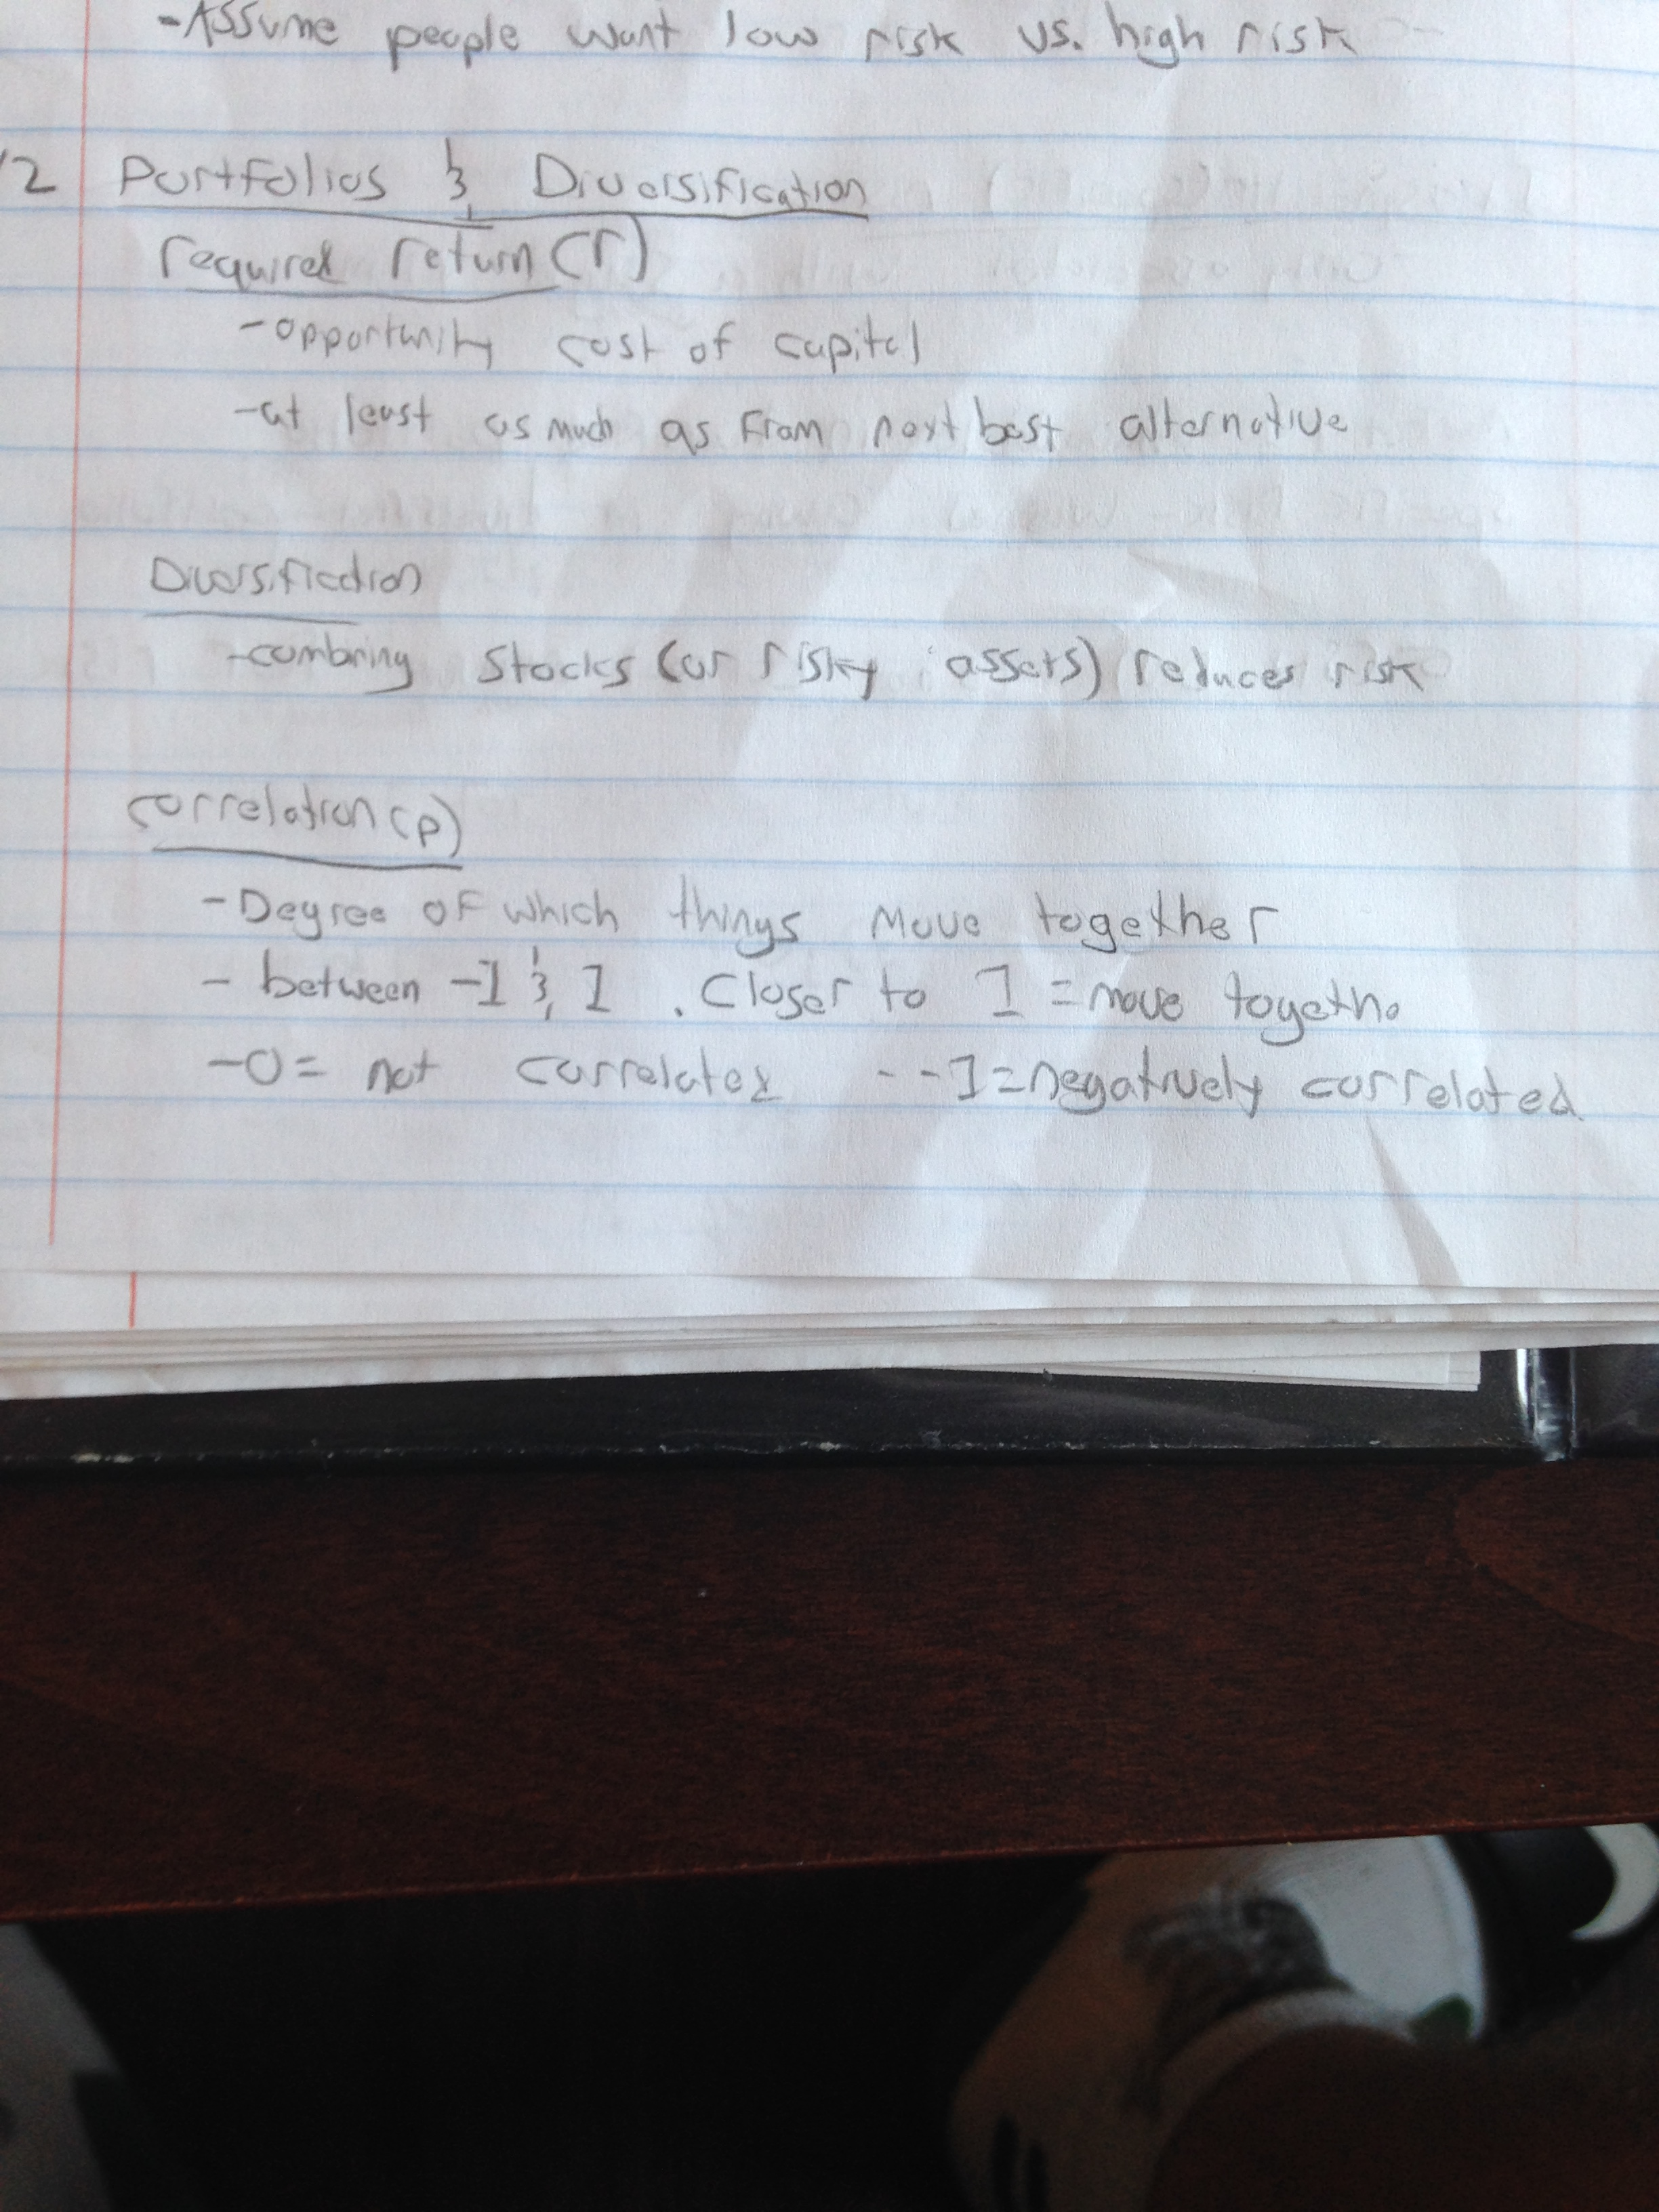 -Assume people want low risk vs. high risk
12 Portfolios & Diversification
required return (r)
-opportunity cost of capital
-at least as much as from next best alternative
Diversification
-combining stocks (or risky assets) reduces risk
correlation (p)
-Degree of which things move together
- between -1 & 1 . Closer to 1 = move together
-0= not correlated - -1=negatively correlated